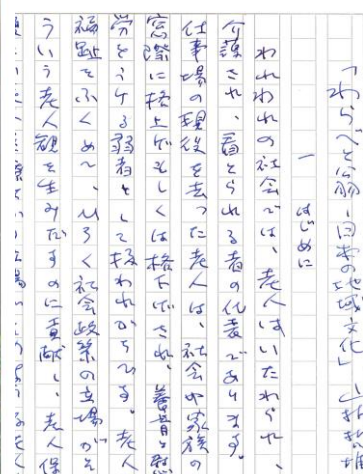 「わらべと翁―日本の地域文化」山折哲雄
一 はじめに
われわれの社会では、老人はいたわられ、
介護され、看とられる者の代表であります。
仕事場の現役を去った老人は、社会や家族の
窓際に格上げもしくは格下げされ、養育と慰
労をうける弱者として扱われがちです。老人
福祉をふくめて、ひろく社会政策の立場がそ
ういう老人観を生みだすのに貢献し、老人保